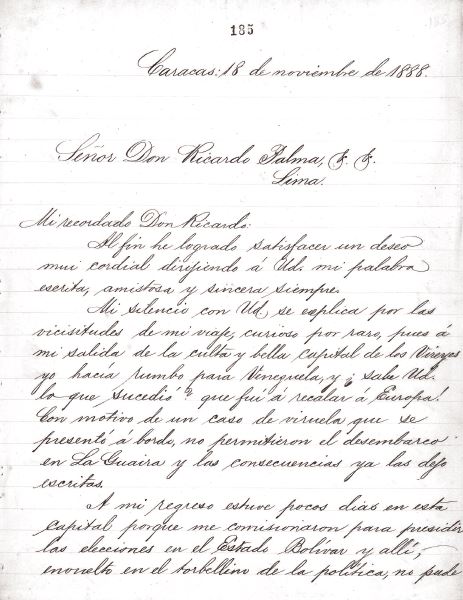 185
Caracas: 18 de noviembre de 1888.
Señor Don Ricardo Palma, &. &.
Lima.
Mi recordado Don Ricardo:
Al fin he logrado satisfacer un deseo
mui cordial dirijiendo á Ud. mi palabra
escrita, amistosa y sincera siempre.
Mi silencio con Ud, se esplica por las
vicisitudes de mi viaje, curioso por raro, pues á
mi salida de la culta y bella capital de los Virreyes
yo hacía rumbo para Venezuela, y ¿ sabe Ud.
lo que sucedió? que fuí á recalar á Europa!
Con motivo de un caso de viruela que se
presentó á bordo, no permitieron el desembarco
en La Guaira y las consecuencias ya las dejo
escritas.
A mi regreso estuve pocos dias en esta
capital porque me comisionaron para presidir
las elecciones en el Estado Bolívar y allí,
envuelto en el torbellino de la política, no pude